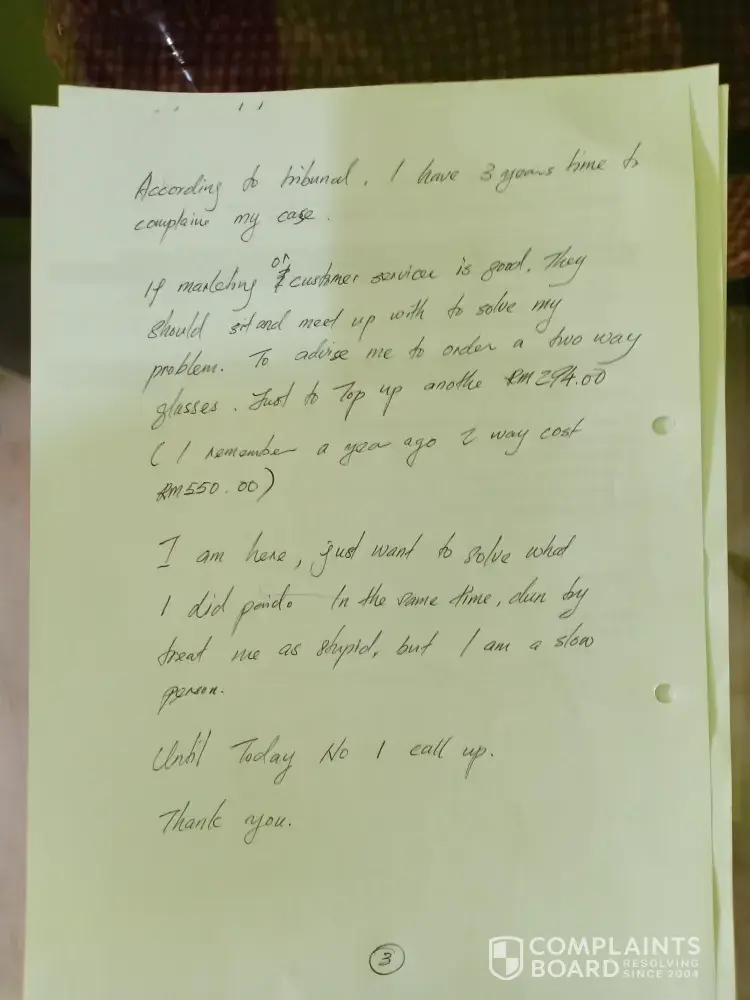 According to tribunal. I have 3 years time to
complaine my case.
If marketing or customer services is good. They
should sit and meet up with to solve my
problem. To advise me to order a two way
glasses. Just to Top up anothe RM294.00
(I remember a year ago 2 way cost
RM550.00)
I am here, just want to solve what
I did paid. In the same time, dun by
treat me as stupid, but I am a slow
person.
Until Today No 1 call up.
Thank you.
3
COMPLAINTS
BOARD RESOLVING
SINCE 2004